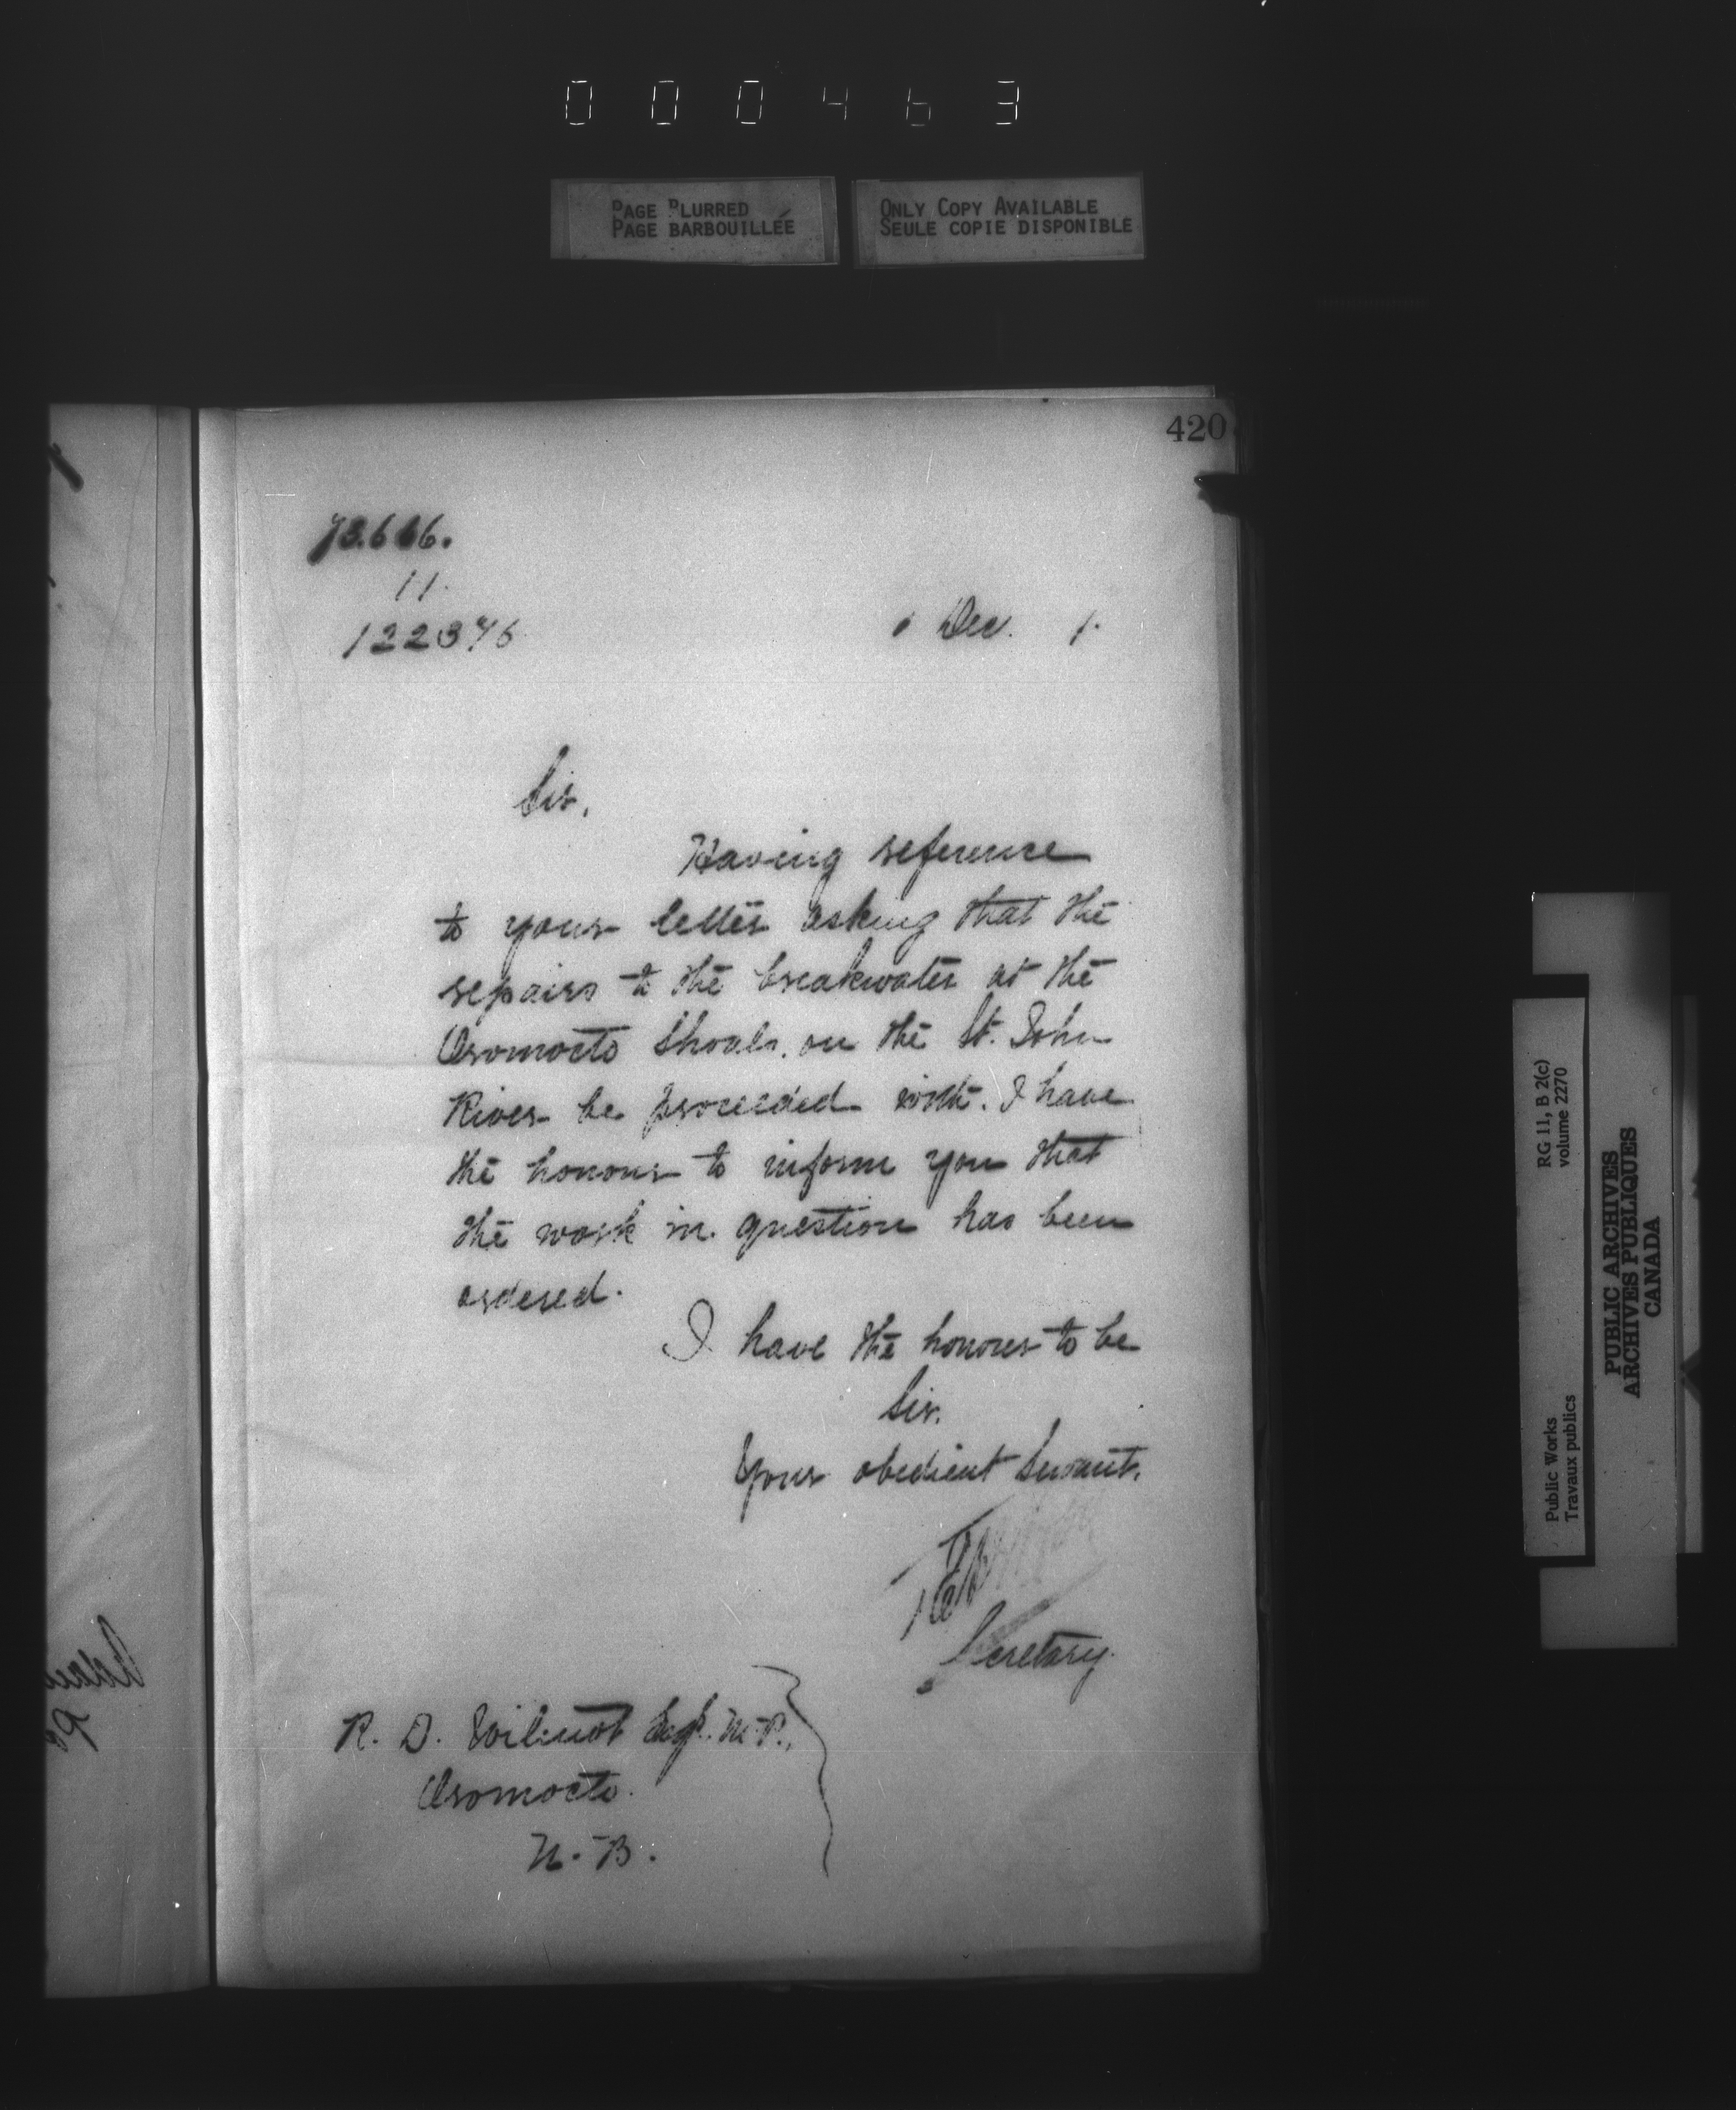 000463
PAGE BLURRED
PAGE BARBOUILLÉE
ONLY COPY AVAILABLE
SEULE COPIE DISPONIBLE
420
11.
Dec. 1.
Sir,
Having reference
to your letter asking that the
repairs to the breakwater at the
Oromocto Shoals, on the St. John
River be proceeded with. I have
the honour to inform you that
the work in question has been
ordered.
I have the honour to be
Sir.
Your obedient Servant.
Secretary.
R. D. Wilmot Esq. M.P.,
Oromocto.
N.B.
RG 11, B 2(c)
volume 2270
Public Works
Travaux publics
PUBLIC ARCHIVES
ARCHIVES PUBLIQUES
CANADA